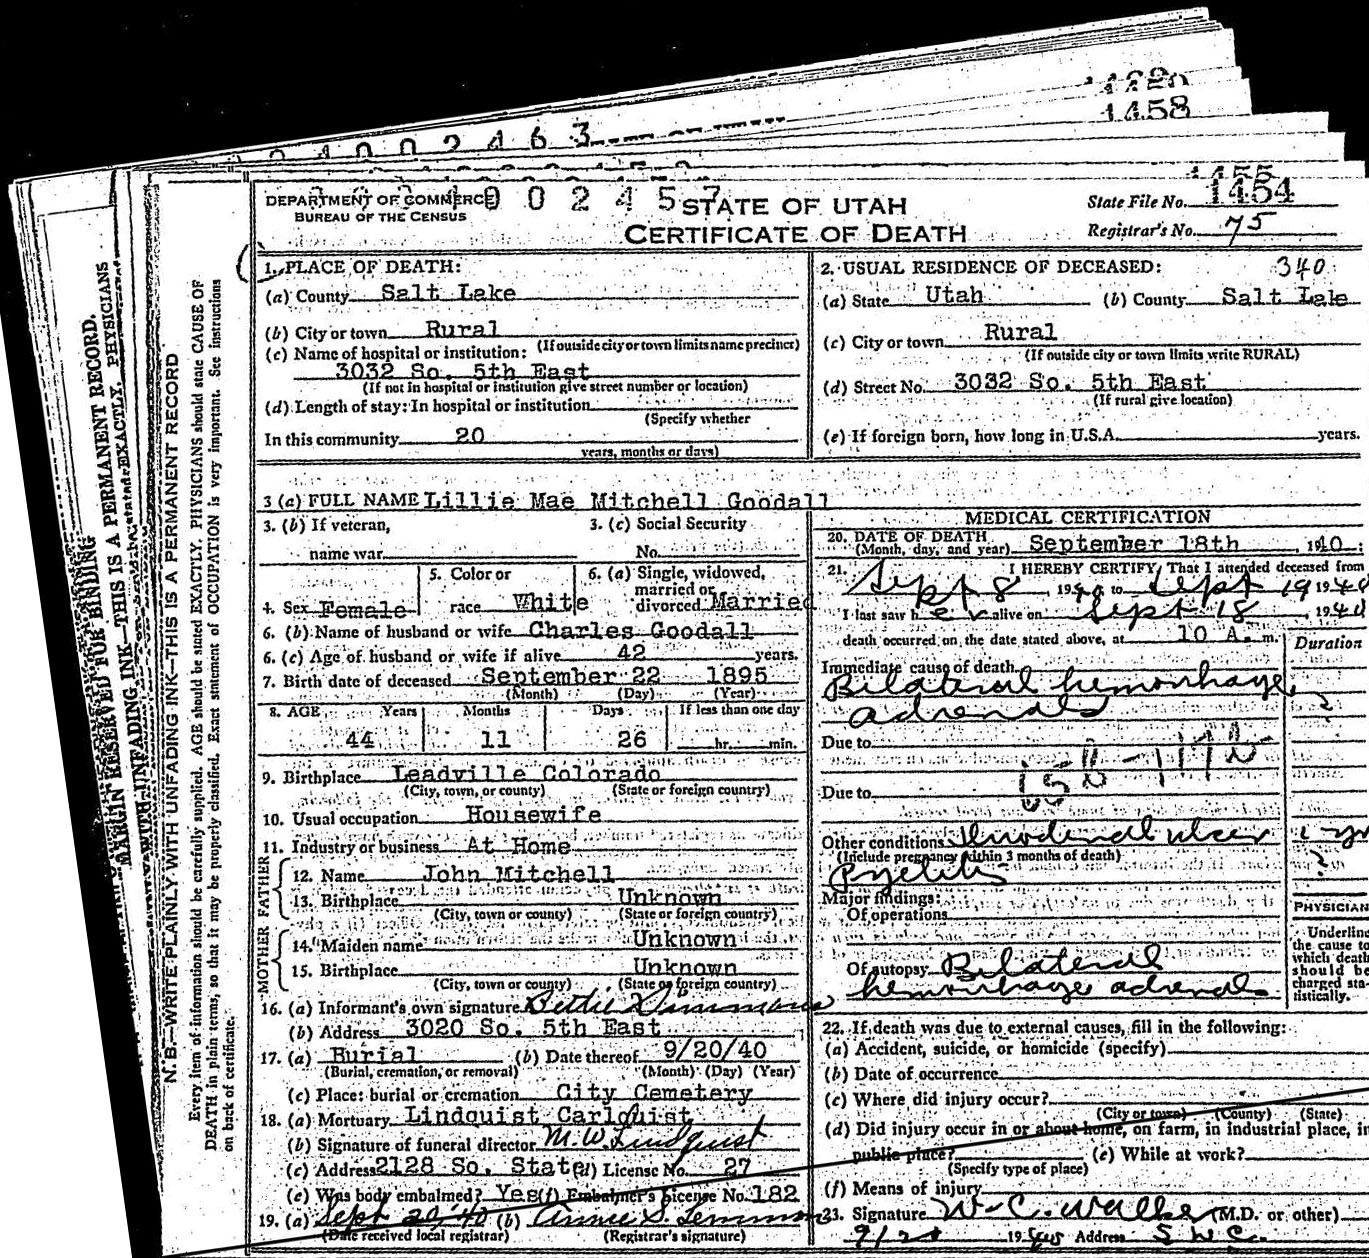 1458
2 4 0 0 2 4 6 3
1455
DEPARTMENT OF COMMERCE
BUREAU OF THE CENSUS
0 0 2 4 5 7
STATE OF UTAH
CERTIFICATE OF DEATH
State File No. 1454
Registrar's No. 75
MARGIN RESERVED FOR BINDING
N. B.—WRITE PLAINLY, WITH UNFADING INK—THIS IS A PERMANENT RECORD
Every item of information should be carefully supplied. AGE should be stated EXACTLY. PHYSICIANS should state CAUSE OF
DEATH in plain terms, so that it may be properly classified. Exact statement of OCCUPATION is very important. See instructions
on back of certificate.
1. PLACE OF DEATH:
(a) County Salt Lake
(b) City or town Rural
(If outside city or town limits name precinct)
(c) Name of hospital or institution:
3032 So. 5th East
(If not in hospital or institution give street number or location)
(d) Length of stay: In hospital or institution
(Specify whether
In this community 20
years, months or days)
2. USUAL RESIDENCE OF DECEASED: 340
(a) State Utah (b) County Salt Lake
(c) City or town Rural
(If outside city or town limits write RURAL)
(d) Street No. 3032 So. 5th East
(If rural give location)
(e) If foreign born, how long in U.S.A. years.
3 (a) FULL NAME Lillie Mae Mitchell Goodall
3. (b) If veteran,
name war
3. (c) Social Security
No.
4. Sex Female
5. Color or
race White
6. (a) Single, widowed,
married or
divorced Married
6. (b) Name of husband or wife Charles Goodall
6. (c) Age of husband or wife if alive 42 years.
7. Birth date of deceased September 22 1895
(Month) (Day) (Year)
8. AGE Years Months Days If less than one day
44 11 26 hr. min.
9. Birthplace Leadville Colorado
(City, town, or county) (State or foreign country)
10. Usual occupation Housewife
11. Industry or business At Home
FATHER
12. Name John Mitchell
13. Birthplace Unknown
(City, town or county) (State or foreign country)
MOTHER
14. Maiden name Unknown
15. Birthplace Unknown
(City, town or county) (State or foreign country)
16. (a) Informant's own signature Bettie Simmons
(b) Address 3020 So. 5th East
17. (a) Burial (b) Date thereof 9/20/40
(Burial, cremation, or removal) (Month) (Day) (Year)
(c) Place: burial or cremation City Cemetery
18. (a) Mortuary Lindquist Carlquist
(b) Signature of funeral director M. W. Lindquist
(c) Address 2128 So. State (d) License No. 27
(e) Was body embalmed? Yes (f) Embalmer's License No. 182
19. (a) Sept 20 '40 (b) Annie S. Lemmon
(Date received local registrar) (Registrar's signature)
MEDICAL CERTIFICATION
20. DATE OF DEATH
(Month, day, and year) September 18th 1940
21. I HEREBY CERTIFY, That I attended deceased from
Sept 8, 1940 to Sept 19 1940
I last saw her alive on Sept 18, 1940
death occurred on the date stated above, at 10 A. m.
Duration
Immediate cause of death
Bilateral hemorrhage ?
adrenals
Due to
15b-117b
Due to
Other conditions Duodenal ulcer 1 yr
(Include pregnancy within 3 months of death)
Pyelitis ?
Major findings:
Of operations
Of autopsy Bilateral
hemorrhage adrenals
PHYSICIAN
Underline
the cause to
which death
should be
charged sta-
tistically.
22. If death was due to external causes, fill in the following:
(a) Accident, suicide, or homicide (specify)
(b) Date of occurrence
(c) Where did injury occur?
(City or town) (County) (State)
(d) Did injury occur in or about home, on farm, in industrial place, in
public place? (e) While at work?
(Specify type of place)
(f) Means of injury
23. Signature W. C. Walker (M.D. or other)
9/20 1940 Address S L C.